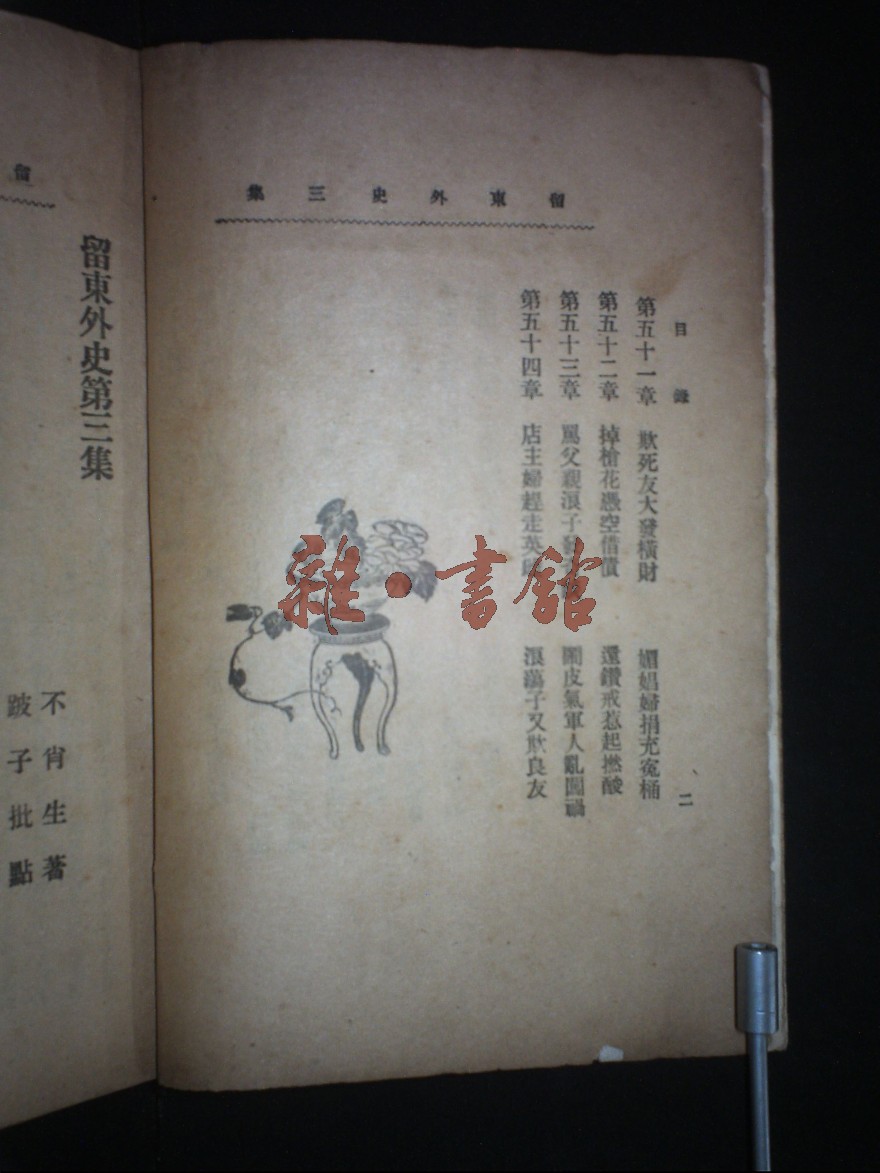 留東外史三集
目錄 二
第五十一章 欺死友大發橫財 媚娼婦捐充冤桶
第五十二章 掉槍花憑空借債 還鑽戒惹起撚酸
第五十三章 罵父親浪子發 鬧皮氣軍人亂闖禍
第五十四章 店主婦趕走英 浪蕩子又欺良友
雜·書館
留
留東外史第三集
不肖生著
跛子批點